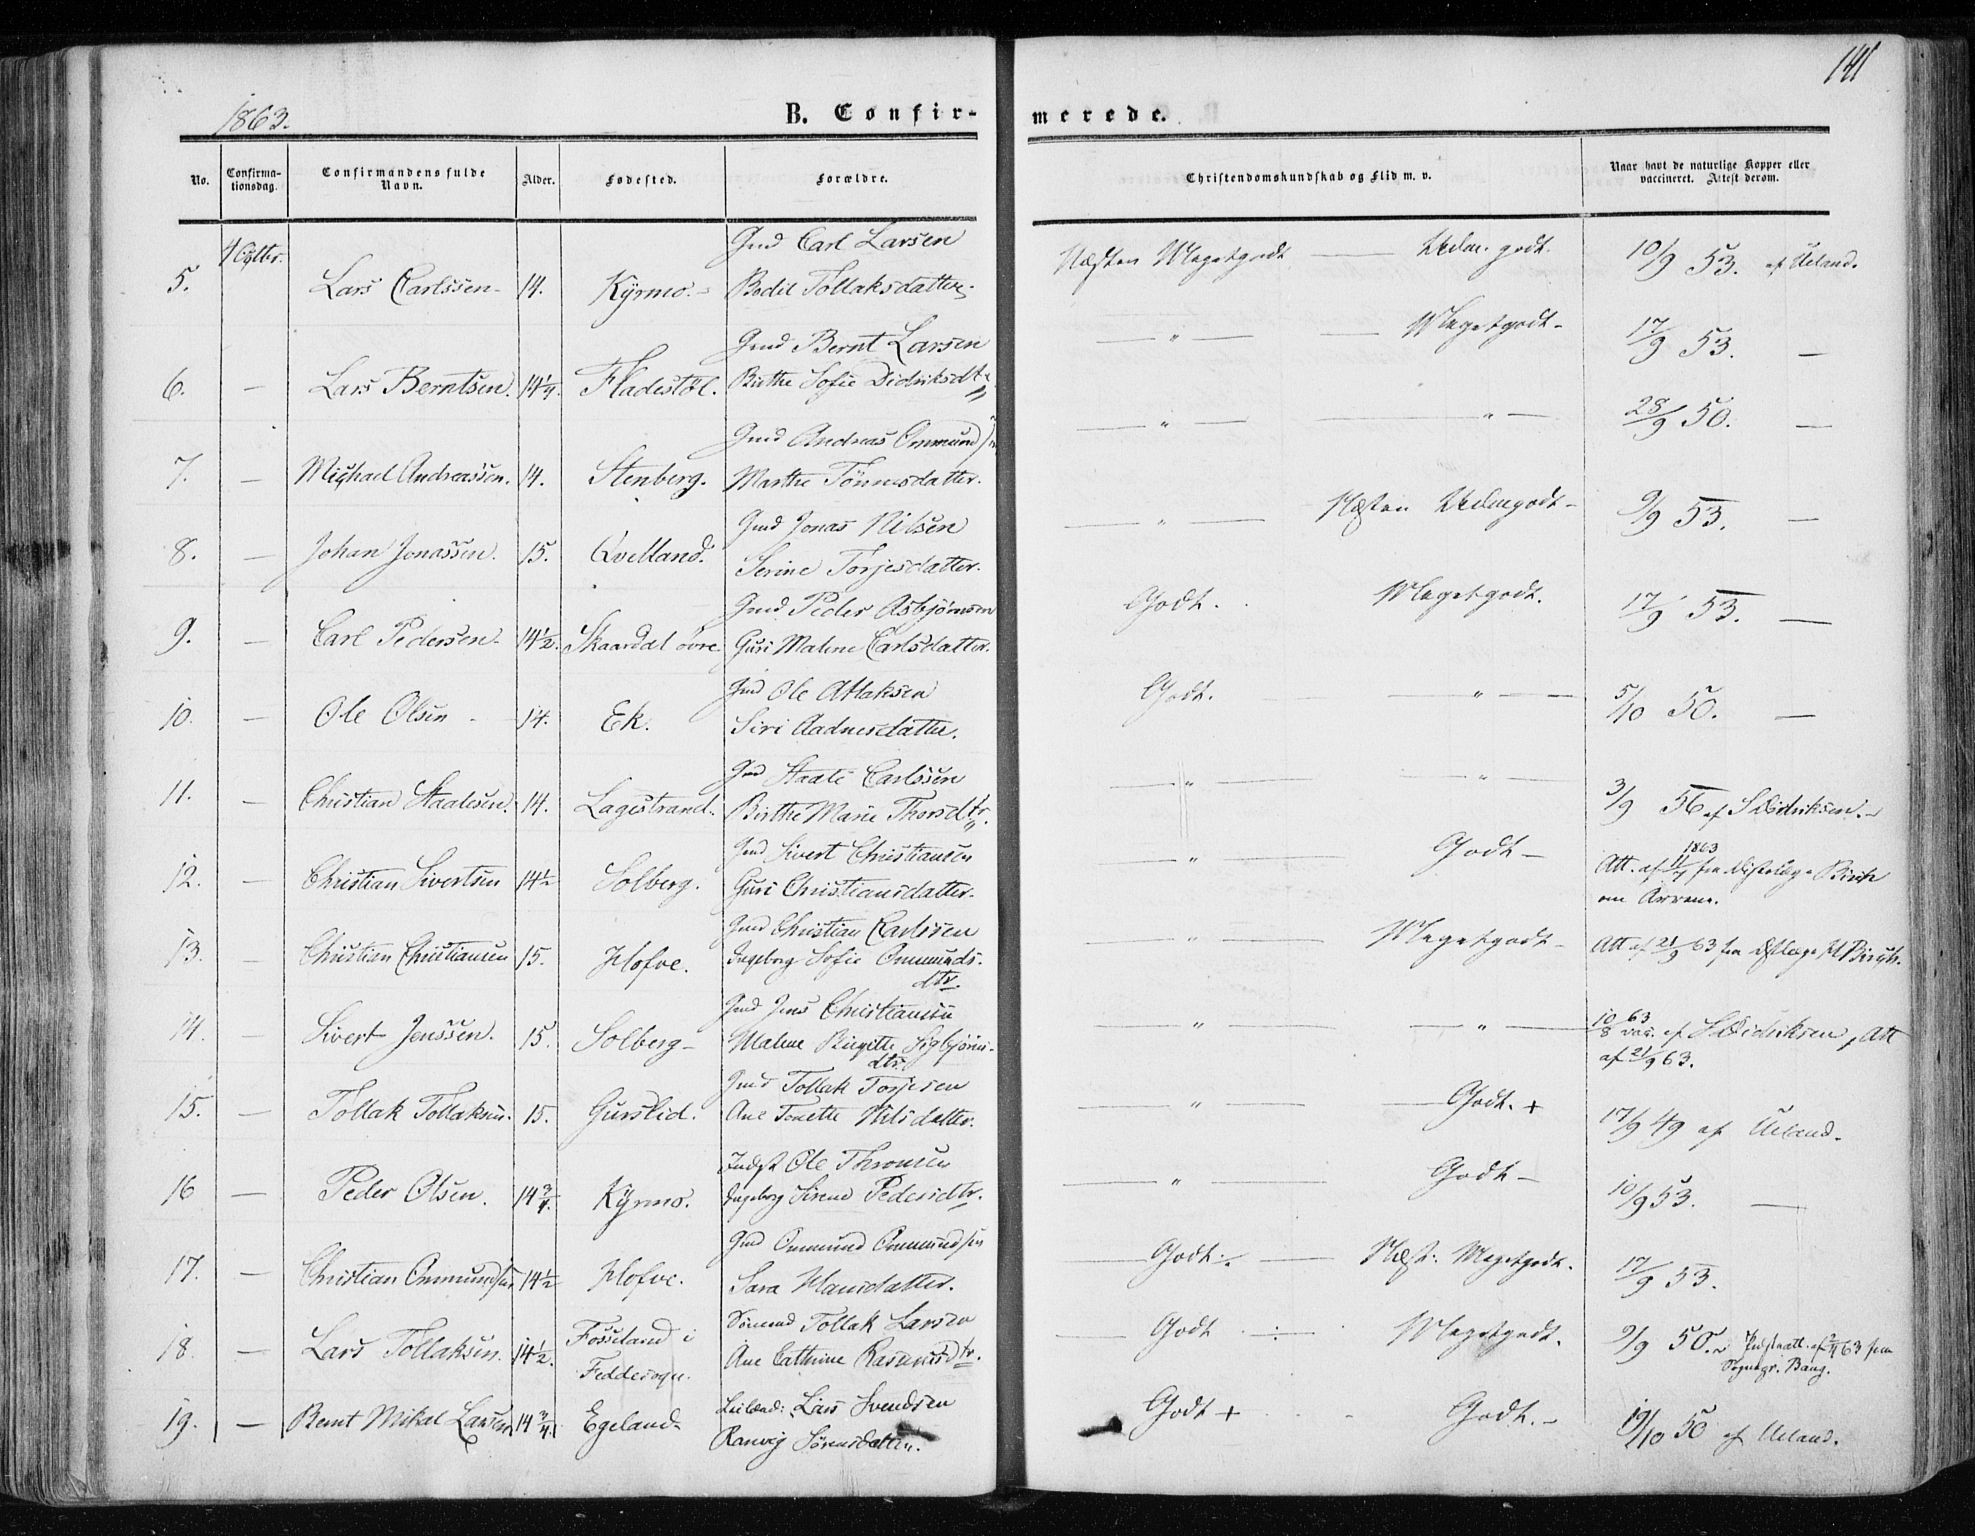 141
1863.
B. Confir- merede.
No. Confirma- tionsdag. Confirmandens fulde Navn. Alder. Fødested. Forældre. Christendomskundskab og Flid m. v. Naar havt de naturlige Kopper eller vaccineret. Attest derom.
4 Octbr. Gmd Carl Larsen
5. Lars Carlssen 14. Kyrmo. Bodil Tollaksdatter. Næsten Megetgodt — Udm. godt. 10/9 53. af Ueland.
Gmd Bernt Larsen
6. — Lars Berntsen. 14 1/4 Fladestøl. Birthe Sofie Didriksdtr — " — — Megetgodt — 17/9 53. —
Gmd Andreas Ommundsen
7. — Michael Andreassen. 14. Stenberg. Marthe Tønnesdatter. — " — — " — 28/9 50. —
Gmd Jonas Nilsen
8. — Johan Jonassen. 15. Qvelland. Serine Torjesdatter. — " — Næsten Udmgodt — 9/9 53. —
Gmd Peder Asbjørnsen
9. — Carl Pedersen 14 1/2. Skaardal øvre Guri Malene Carlsdatter. Godt. Megetgodt. 17/9 53. —
Gmd Ole Atlaksen
10. — Ole Olsen 14. Ek. Siri Aadnesdatter. Godt. — " — 5/10 50. —
Gmd Staale Carlssen
11. — Christian Staalesen. 14. Lagestrand. Birthe Marie Thorsdtr. — " — — " — 3/9 56 af S Didriksen.
Gmd Sivert Christiansen
12. — Christian Sivertsen 14 1/2 Solberg. Guri Christiansdatter. — " — Godt — Att. af 1863 fra
om Arrene.
Gmd Christian Carlssen
13. — Christian Christiansen 15. Hofve. Ingeborg Sofie Ommunds-
dtr. — " — Megetgodt — Att af 21/9 63 fra
Gmd Jens Christiansen
14. — Sivert Jenssen. 15. Solberg — Malene Birgitte Sigbjørns-
dtr. — " — — " — 10/8 63 vac. af S Didriksen, Att
af 21/9 63.
Gmd Tollak Torjesen
15. — Tollak Tollaksen. 15. Gurslid. Ane Tonette Nilsdatter. — " — — Godt. + 17/9 49 af Ueland.
Indst Ole Thronsen
16 — Peder Olsen. 14 3/4. Kyrmo. Ingeborg Sirene Pedersdtr. — " — Godt — 10/9 53. —
Gmd Ommund Ommundsen
17. — Christian Ommundsen 14 1/2 Hofve. Sara Hansdatter. — Godt. — Næst. Megetgodt. 17/9 53.
Sømand Tollak Larsen
18. — Lars Tollaksen. 14 1/2. Fosseland i
Feddesogn. Ane Cathrine Rasmusdtr. — Godt ÷ Megetgodt. 9/9 50. 63 fra
Sognepr. Bang.
Leilænd: Lars Svendsen
19. — Bernt Mikal Larsen 14 3/4. Egeland. Ranveig Sørensdatter. Godt + Godt. — 19/10 50 af Ueland.